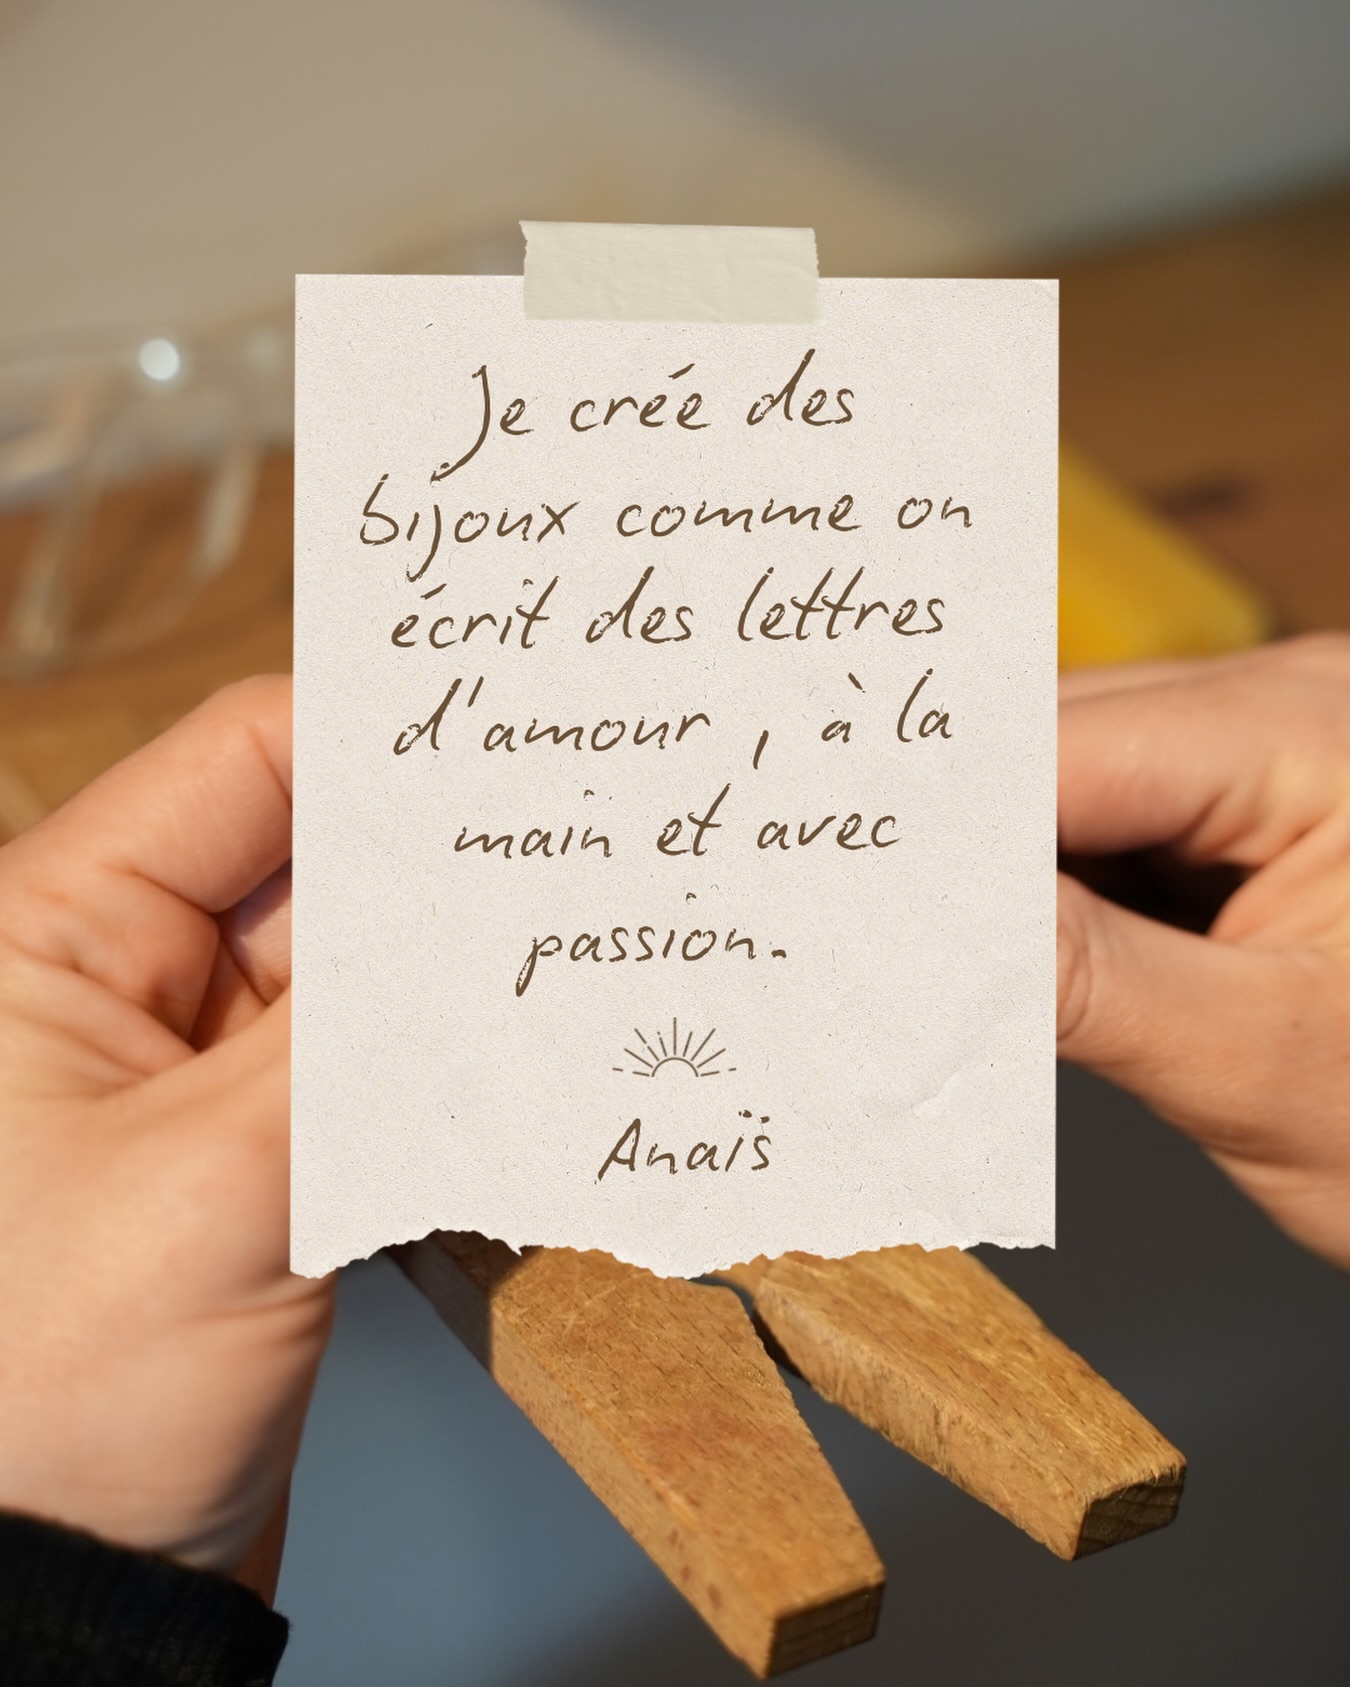 Je crée des
bijoux comme on
écrit des lettres
d'amour , à la
main et avec
passion.
Anaïs